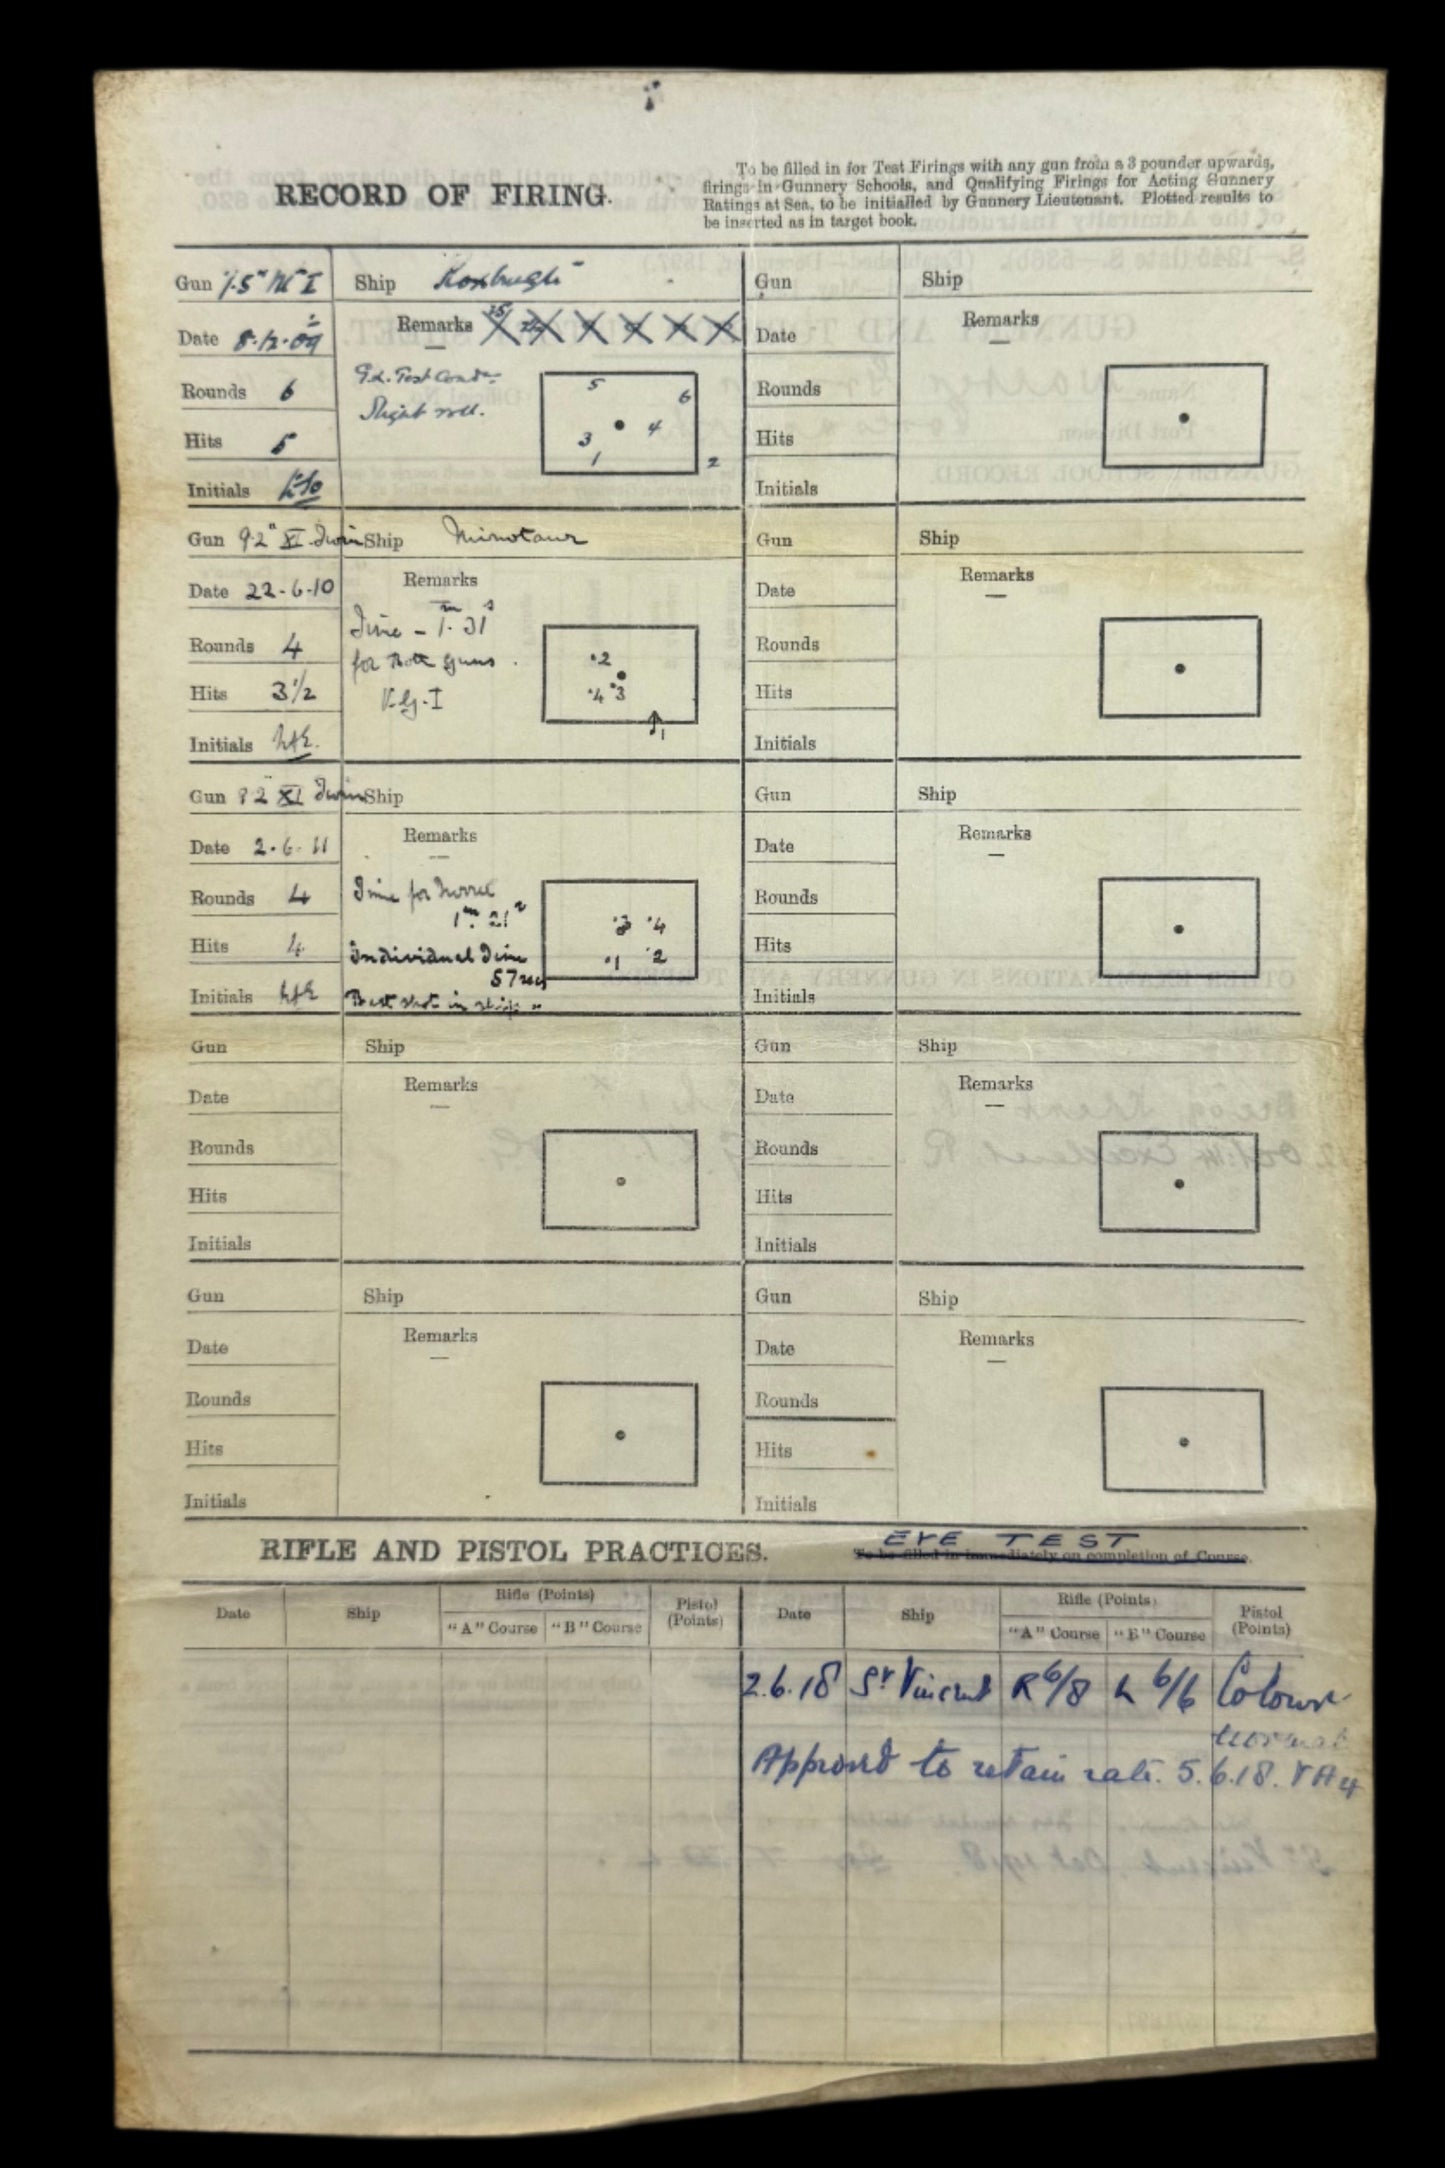 RECORD OF FIRING.
To be filled in for Test Firings with any gun from a 3 pounder upwards,
firings in Gunnery Schools, and Qualifying Firings for Acting Gunnery
Ratings at Sea, to be initialled by Gunnery Lieutenant. Plotted results to
be inserted as in target book.
Gun 7.5" Mk I Ship Roxburgh
Date 8.12.09 Remarks
Rounds 6
Slight roll.
Hits 5
Initials
5
6
4
3
1
2
Gun 9.2" XI Twin Ship Minotaur
Date 22-6-10 Remarks
Rounds 4 Time - 1m 31s
for Both guns.
Hits 3 1/2 V.G.I
Initials
2
4 3
1
Gun 9.2 XI Twin Ship
Date 2.6.11 Remarks
Rounds 4 Time for Turret
1m 21s
Hits 4 Individual Time
57 secs
Initials Best shot in ship
3 4
1 2
Gun Ship
Date Remarks
Rounds
Hits
Initials
Gun Ship
Date Remarks
Rounds
Hits
Initials
Gun Ship
Date Remarks
Rounds
Hits
Initials
Gun Ship
Date Remarks
Rounds
Hits
Initials
Gun Ship
Date Remarks
Rounds
Hits
Initials
Gun Ship
Date Remarks
Rounds
Hits
Initials
Gun Ship
Date Remarks
Rounds
Hits
Initials
RIFLE AND PISTOL PRACTICES.
EYE TEST
To be filled in immediately on completion of Course.
Date Ship Rifle (Points) Pistol (Points) Date Ship Rifle (Points) Pistol (Points)
"A" Course "B" Course "A" Course "B" Course
2.6.18 St Vincent R 6/8 L 6/6 Colour
normal
Approved to retain rate. 5.6.18.